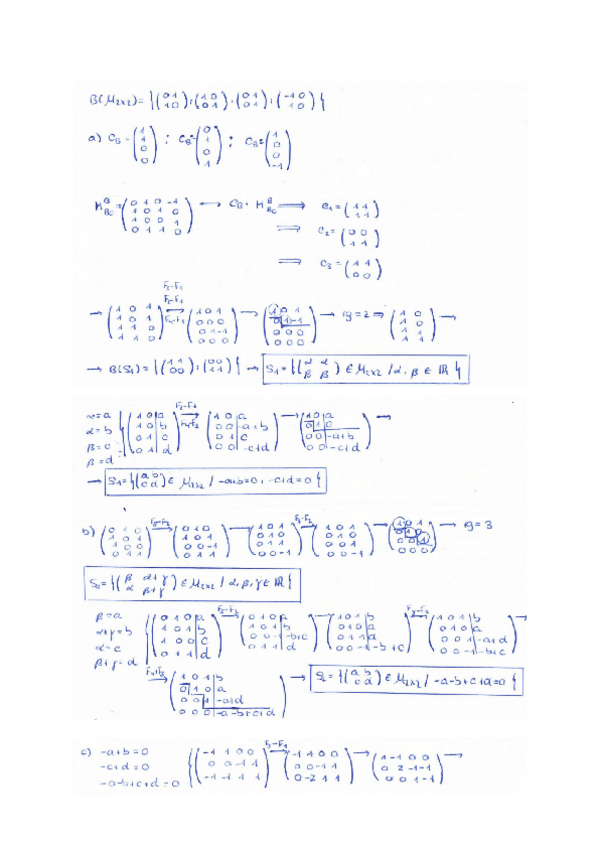 B(M2x2) = {(0 1 / 1 0); (1 0 / 0 1); (0 1 / 0 1); (-1 0 / 1 0)}
a) CB = (1 / 1 / 0 / 0) ; CB = (0 / 1 / 0 / 1) ; CB = (1 / 0 / 0 / -1)
M B Bc = (0 1 0 -1 / 1 0 1 0 / 1 0 0 1 / 0 1 1 0) → CB · M B Bc ⇒ C1 = (1 1 / 1 1)
⇒ C2 = (0 0 / 1 1)
⇒ C3 = (1 1 / 0 0)
→ (1 0 1 / 1 0 1 / 1 1 0 / 1 1 0) F2-F1 (1 0 1 / 0 0 0 / 0 1 -1 / 0 0 0) → (1 0 1 / 0 1 -1 / 0 0 0 / 0 0 0) → rg = 2 ⇒ (1 0 / 1 0 / 0 1 / 0 1) →
→ B(S1) = {(1 1 / 0 0) ; (0 0 / 1 1)} → S1 = {(α α / β β) ∈ M2x2 / α, β ∈ ℝ}
α = a
α = b
β = c
β = d
{(1 0 | a / 1 0 | b / 0 1 | c / 0 1 | d) F2-F1 F4-F3 → (1 0 | a / 0 0 | -a+b / 0 1 | c / 0 0 | -c+d) → (1 0 | a / 0 1 | c / 0 0 | -a+b / 0 0 | -c+d) →
→ S1 = {(a b / c d) ∈ M2x2 / -a+b = 0, -c+d = 0}
b) (0 1 0 / 1 0 1 / 1 0 0 / 0 1 1) F3-F2 → (0 1 0 / 1 0 1 / 0 0 -1 / 0 1 1) → (1 0 1 / 0 1 0 / 0 1 1 / 0 0 -1) F3-F2 → (1 0 1 / 0 1 0 / 0 0 1 / 0 0 -1) → (1 0 1 / 0 1 0 / 0 0 1 / 0 0 0) → rg = 3
S2 = {(β α+γ / α β+γ) ∈ M2x2 / α, β, γ ∈ ℝ}
β = a
α+γ = b
α = c
β+γ = d
{(0 1 0 | a / 1 0 1 | b / 1 0 0 | c / 0 1 1 | d) F3-F2 → (0 1 0 | a / 1 0 1 | b / 0 0 -1 | -b+c / 0 1 1 | d) → (1 0 1 | b / 0 1 0 | a / 0 1 1 | d / 0 0 -1 | -b+c) F3-F2 → (1 0 1 | b / 0 1 0 | a / 0 0 1 | -a+d / 0 0 -1 | -b+c) →
F4+F3 → (1 0 1 | b / 0 1 0 | a / 0 0 1 | -a+d / 0 0 0 | -a-b+c+d) → S2 = {(a b / c d) ∈ M2x2 / -a-b+c+d = 0}
c) -a+b = 0
-c+d = 0
-a-b+c+d = 0
{(-1 1 0 0 / 0 0 -1 1 / -1 -1 1 1) F3-F1 → (-1 1 0 0 / 0 0 -1 1 / 0 -2 1 1) → (1 -1 0 0 / 0 2 -1 -1 / 0 0 1 -1) →